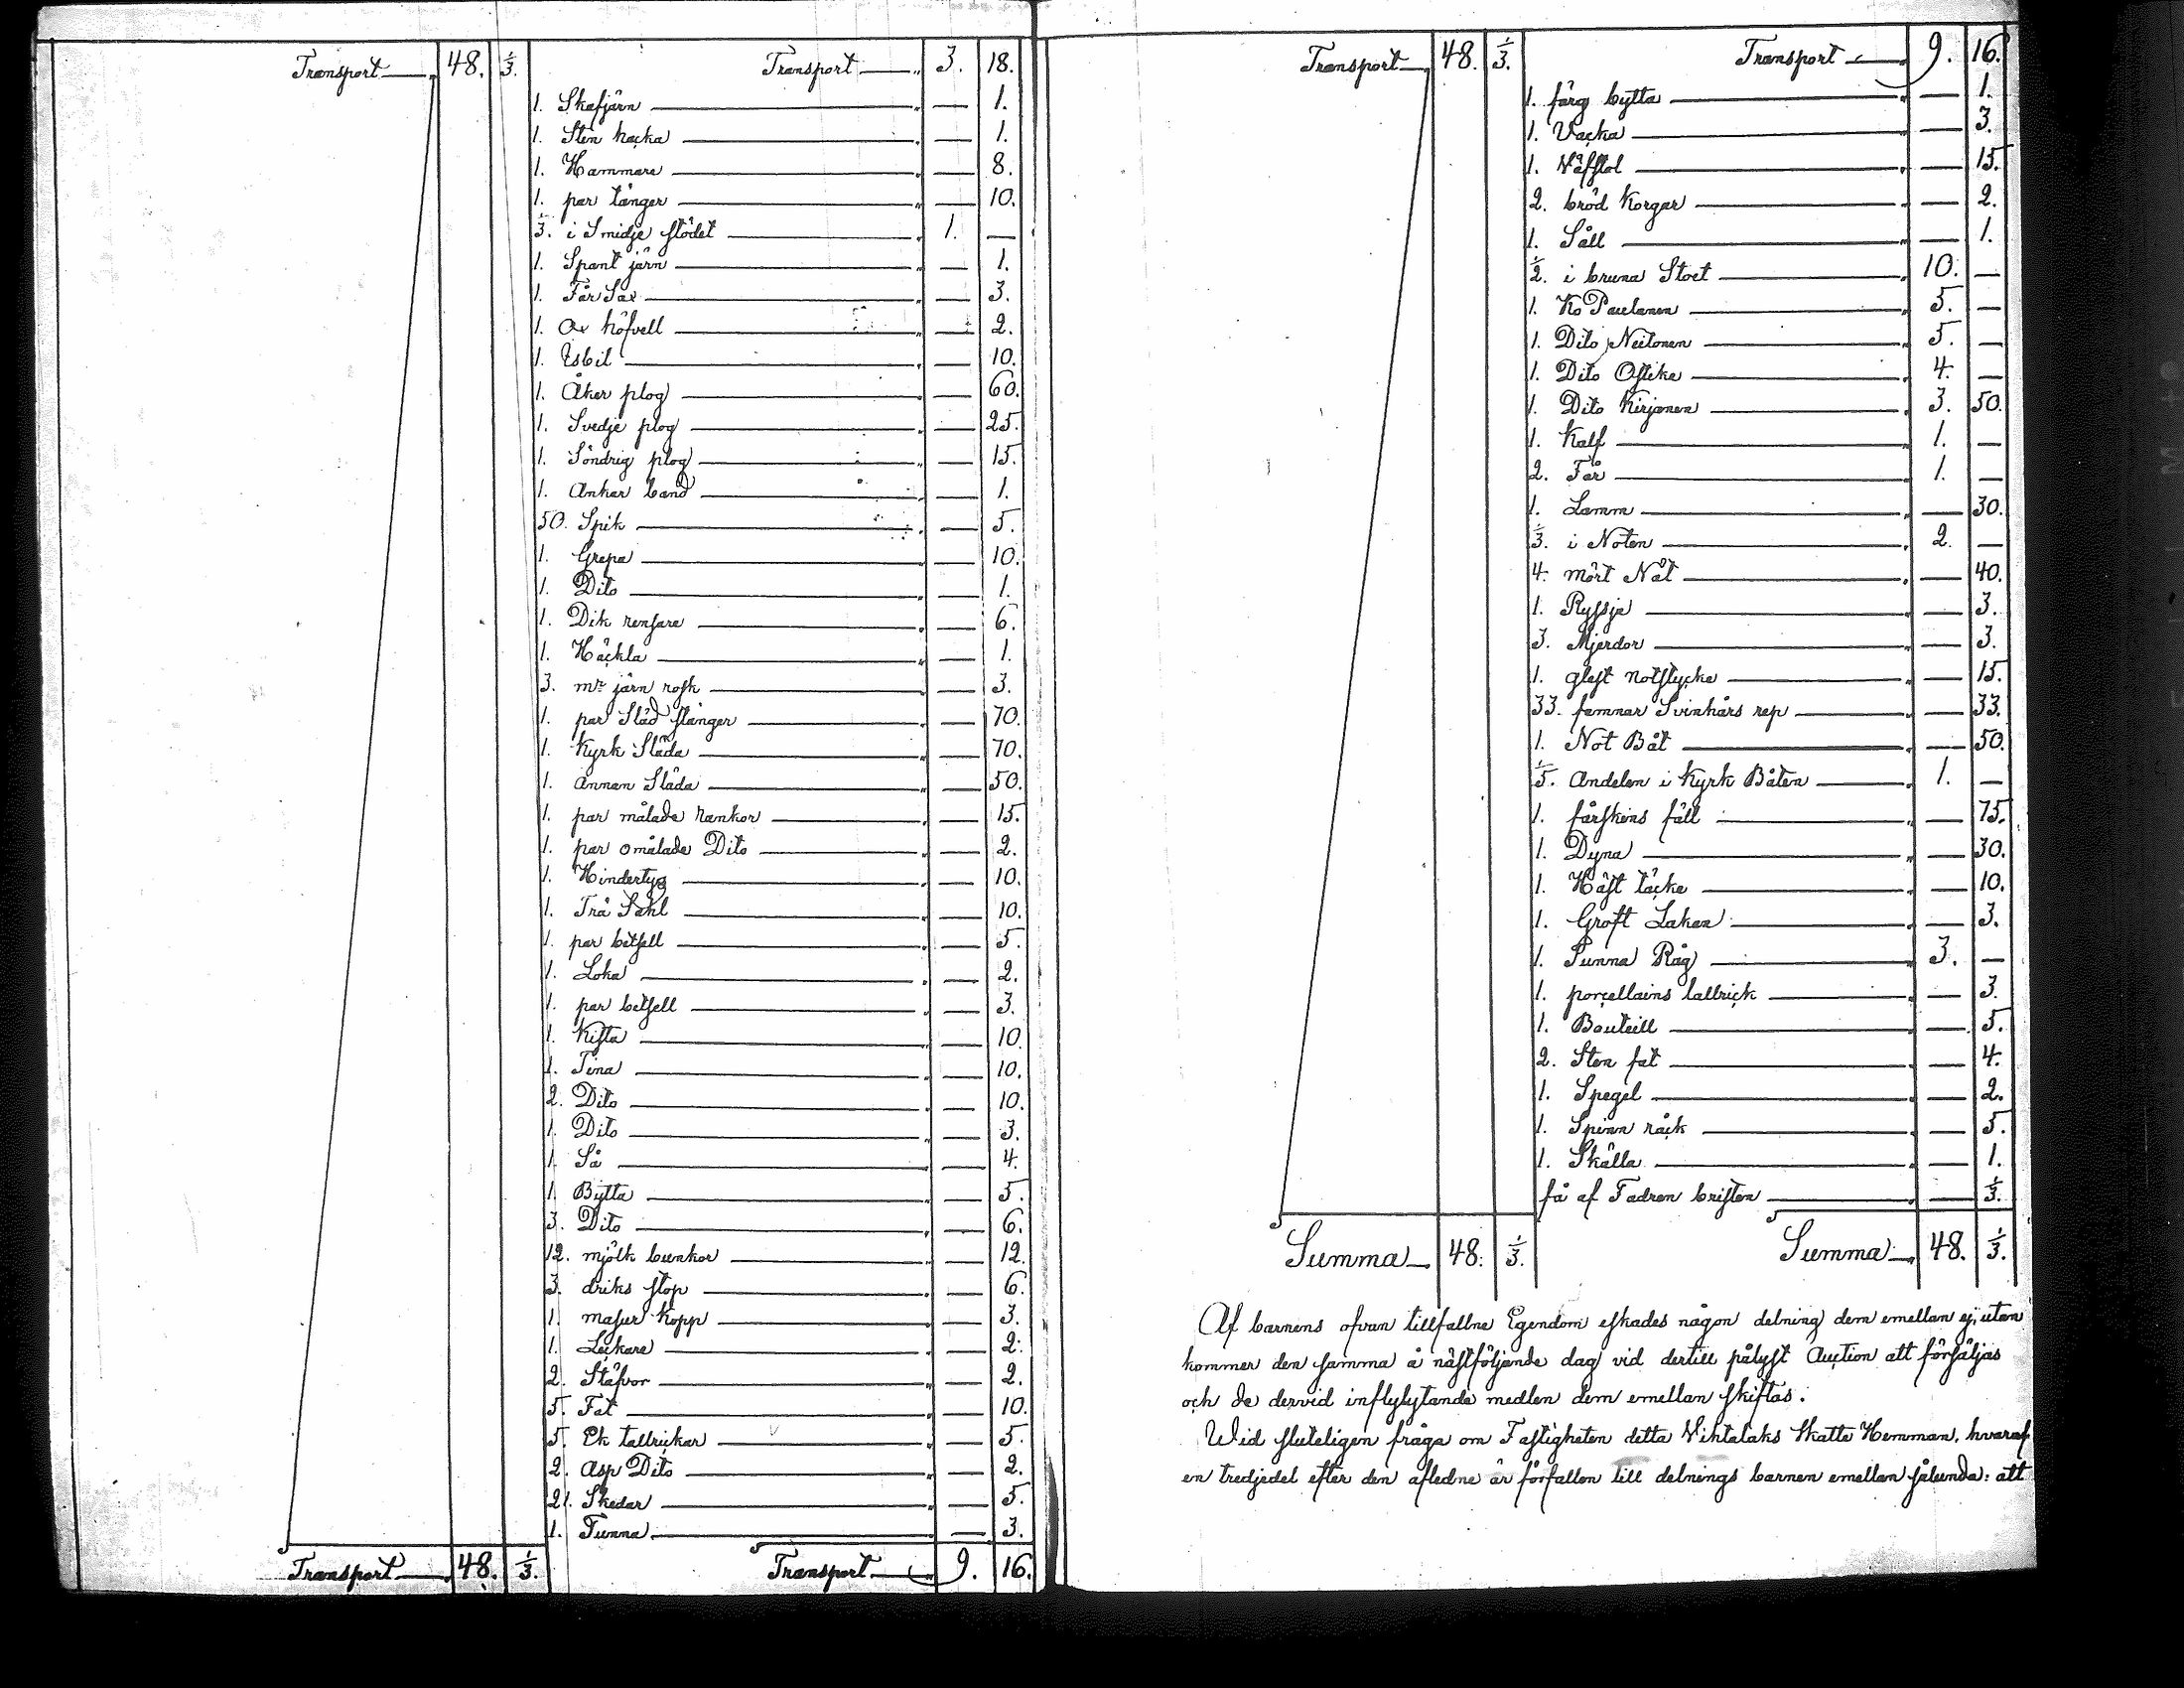 Transport 48. 1/3. Transport 3. 18.
1. Skafjärn — 1.
1. Sten hacka — 1.
1. Hammare — 8.
1. par tänger — 10.
1/3. i Smidje städet 1. —
1. Spant järn — 1.
1. Får Sax — 3.
1. Ox höfvell — 2.
1. Isbil — 10.
1. Åker plog — 60.
1. Svedje plog — 25.
1. Söndrig plog — 15.
1. Ankar band — 1.
50. Spik — 5.
1. Grepa — 10.
1. Dito — 1.
1. Dik rensare — 6.
1. Häckla — 1.
3. mr järn rosk — 3.
1. par Släd stänger — 70.
1. Kyrk Släda — 70.
1. Annan Släda — 50.
1. par målade rankor — 15.
1. par omålade Dito — 2.
1. Hindertyg — 10.
1. Trä Sahl — 10.
1. par betsell — 5.
1. Loka — 2.
1. par betsell — 3.
1. Kista — 10.
1. Tina — 10.
2. Dito — 10.
1. Dito — 3.
1. Så — 4.
1. Bytta — 5.
3. Dito — 6.
12. mjölk bunkor — 12.
3. driks stop — 6.
1. masur kopp — 3.
1. Leckare — 2.
2. Stäfvor — 2.
5. Fat — 10.
5. Ek tallrickar — 5.
2. Asp Dito — 2.
21. Skedar — 5.
1. Tunna — 3.
Transport 48. 1/3. Transport 9. 16.
Transport 48. 1/3. Transport 9. 16.
1. färg bytta — 1.
1. Vacka — 3.
1. Väfstol — 15.
2. bröd Korgar — 2.
1. Såll — 1.
1/2. i bruna Stoet 10. —
1. Ko Paulanen 5. —
1. Dito Neitonen 5. —
1. Dito Ostika 4. —
1. Dito Kirjonen 3. 50.
1. Kalf 1. —
2. Får 1. —
1. Lamm — 30.
1/3. i Noten 2. —
4. mört Nät — 40.
1. Ryssja — 3.
3. Mjerdor — 3.
1. glest notstycke — 15.
33. famnar Svinhårs rep — 33.
1. Not Båt — 50.
1/5. Andelen i Kyrk Båten 1. —
1. fårskins fäll — 75.
1. Dyna — 30.
1. Häst täcke — 10.
1. Groft Lakan — 3.
1. Tunna Råg 3. —
1. porcellains tallrick — 3.
1. Bouteill — 5.
2. Sten fat — 4.
1. Spegel — 2.
1. Spinn räck — 5.
1. Skälla — 1.
få af Fadren bristen — 1/3.
Summa 48. 1/3. Summa 48. 1/3.
Af barnens ofvan tillfallne Egendom eskades någon delning dem emellan ej, utan
kommer den samma å nästföljande dag vid dertill pålyst Auction att försäljas
och de dervid inflylytande medlen dem emellan skiftas.
Wid sluteligen fråga om Fastigheten detta Vihtalaks Skatte Hemman, hvaraf
en tredjedel efter den aflédne är förfallen till delnings barnen emellan sålunda: att